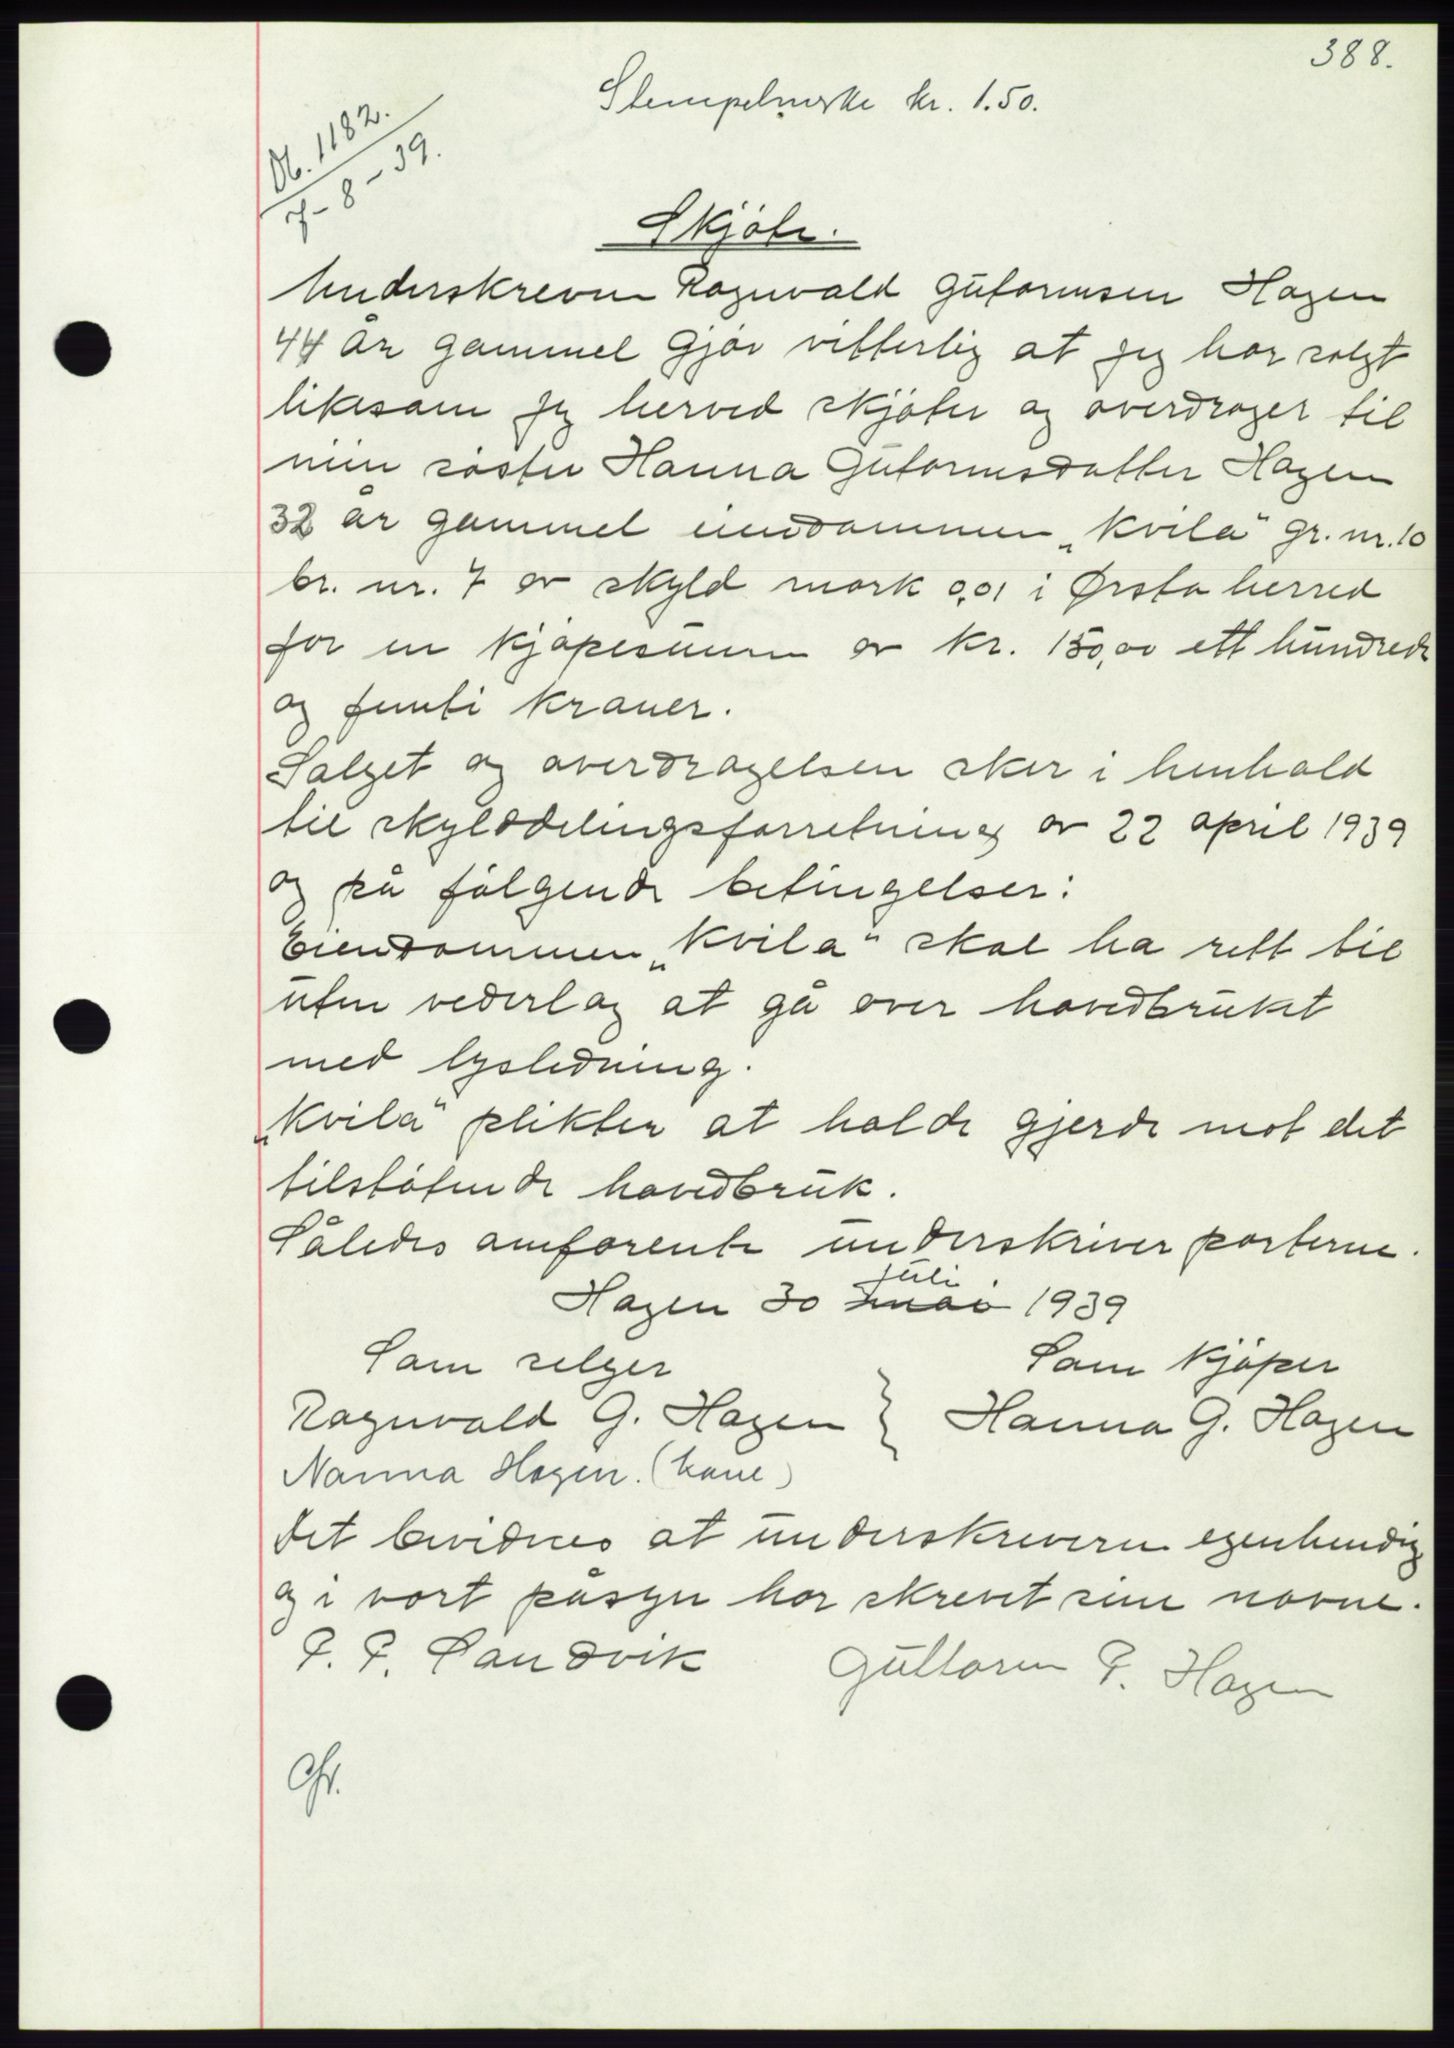 388.
Stempelmerke kr. 1.50.
Db. 1182.
7-8-39.
Skjöte.
Underskreven Ragnvald Gutormsen Hagen
44 år gammel gjör vitterlig at jeg har solgt
likesom jeg herved skjöter og overdrager til
min söster Hanna Gutormsdatter Hagen
32 år gammel eiendommen „Kvila" gr. nr. 10
br. nr. 7 av skyld mark 0,01 i Ørsta herred
for en kjöpesum av kr. 150,00 ett hundrede
og femti kroner.
Salget og overdragelsen sker i henhold
til skylddelingsforretning av 22 april 1939
og på fölgende betingelser:
Eiendommen „Kvila" skal ha rett til
uten vederlag at gå over hovedbruket
med lysledning.
„Kvila" plikter at holde gjerde mot det
tilstötende hovedbruk.
Således omforente underskriver parterne.
Hagen 30 juli mai 1939
Som selger
Som kjöper
Ragnvald G. Hagen } Hanna G. Hagen
Nanna Hagen. (kone)
Det bevidnes at underskriverne egenhendig
og i vort påsyn har skrevet sine navne.
P. P. Sandvik
Guttorm P. Hagen